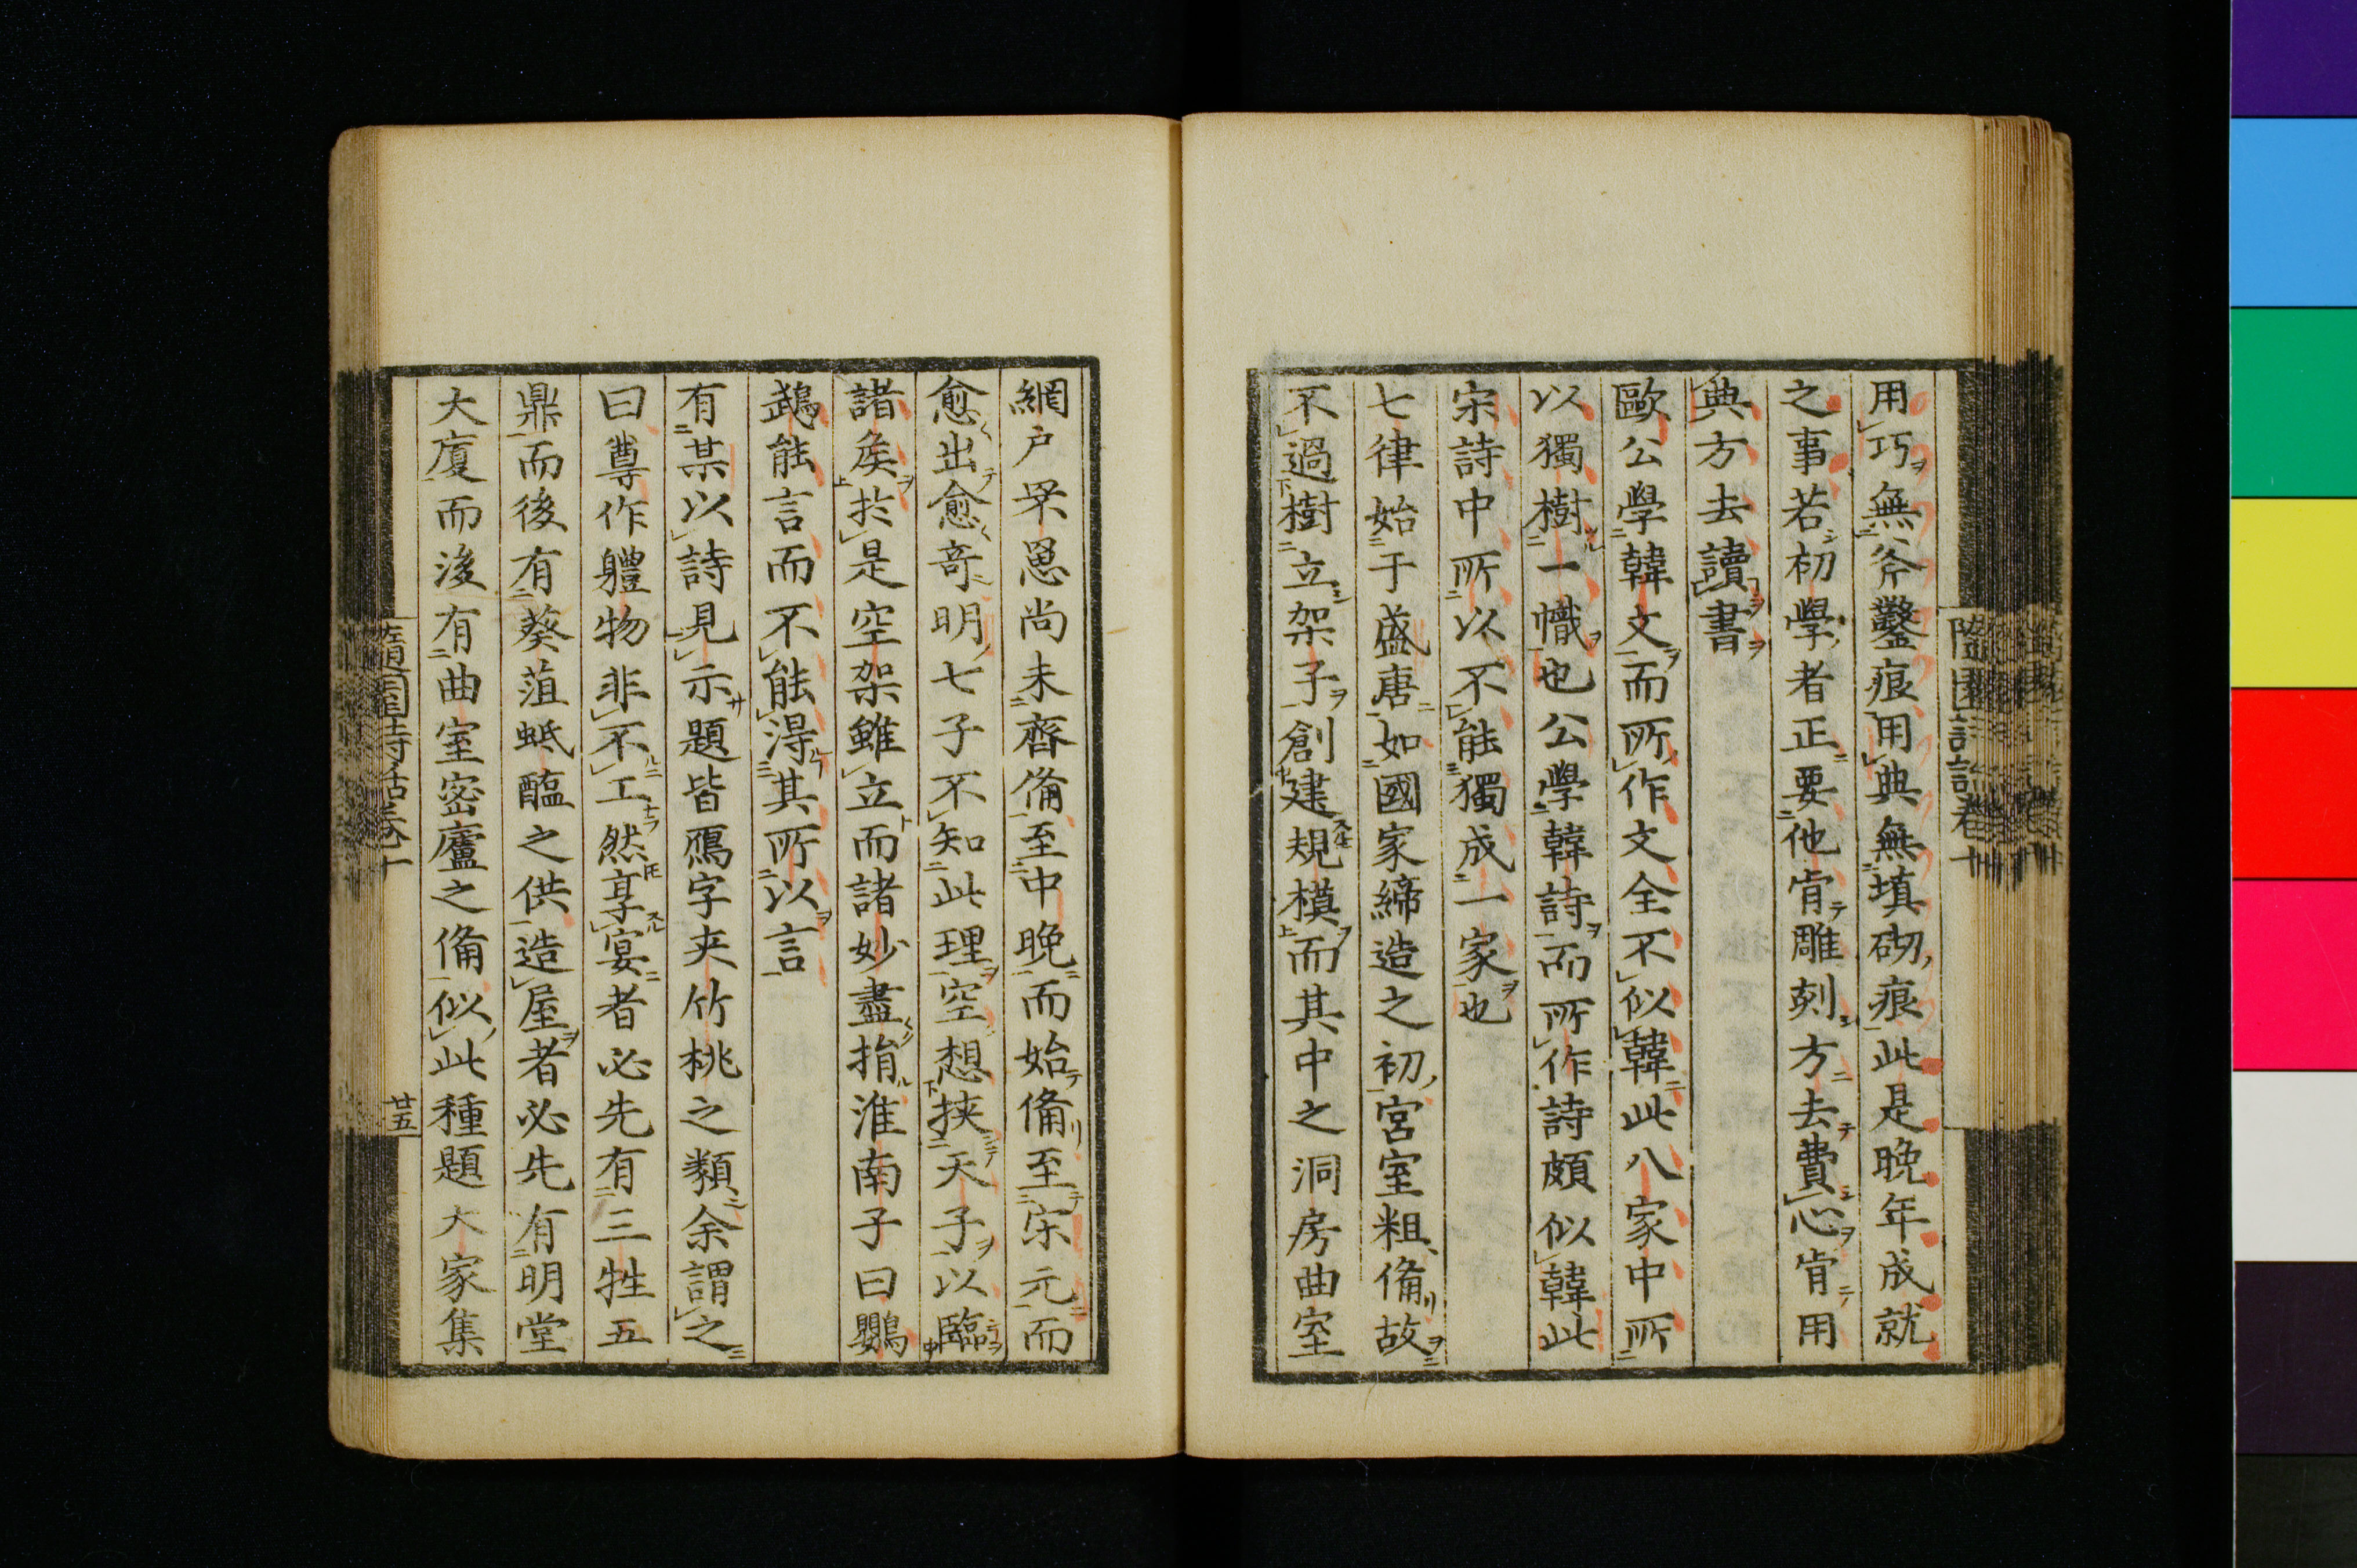 用巧無斧鑿痕用典無填砌痕此是晚年成就
之事若初學者正要他肯雕刻方去費心肯用
典方去讀書
歐公學韓文而所作文全不似韓此八家中所
以獨樹一幟也公學韓詩而所作詩頗似韓此
宋詩中所以不能獨成一家也
七律始于盛唐如國家締造之初宮室粗備故
不過樹立架子創建規模而其中之洞房曲室
網户罘罳尚未齊備至中晚而始備至宋元而
愈出愈奇明七子不知此理空想挾天子以臨
諸矦於是空架雖立而諸妙盡捐淮南子曰鸚
鵡能言而不能得其所以言
有某以詩見示題皆鴈字夾竹桃之類余謂之
曰尊作體物非不工然享宴者必先有三牲五
鼎而後有葵菹蚳醢之供造屋者必先有明堂
大廈而後有曲室密廬之備似此種題大家集
隨園詩話卷十
廿五